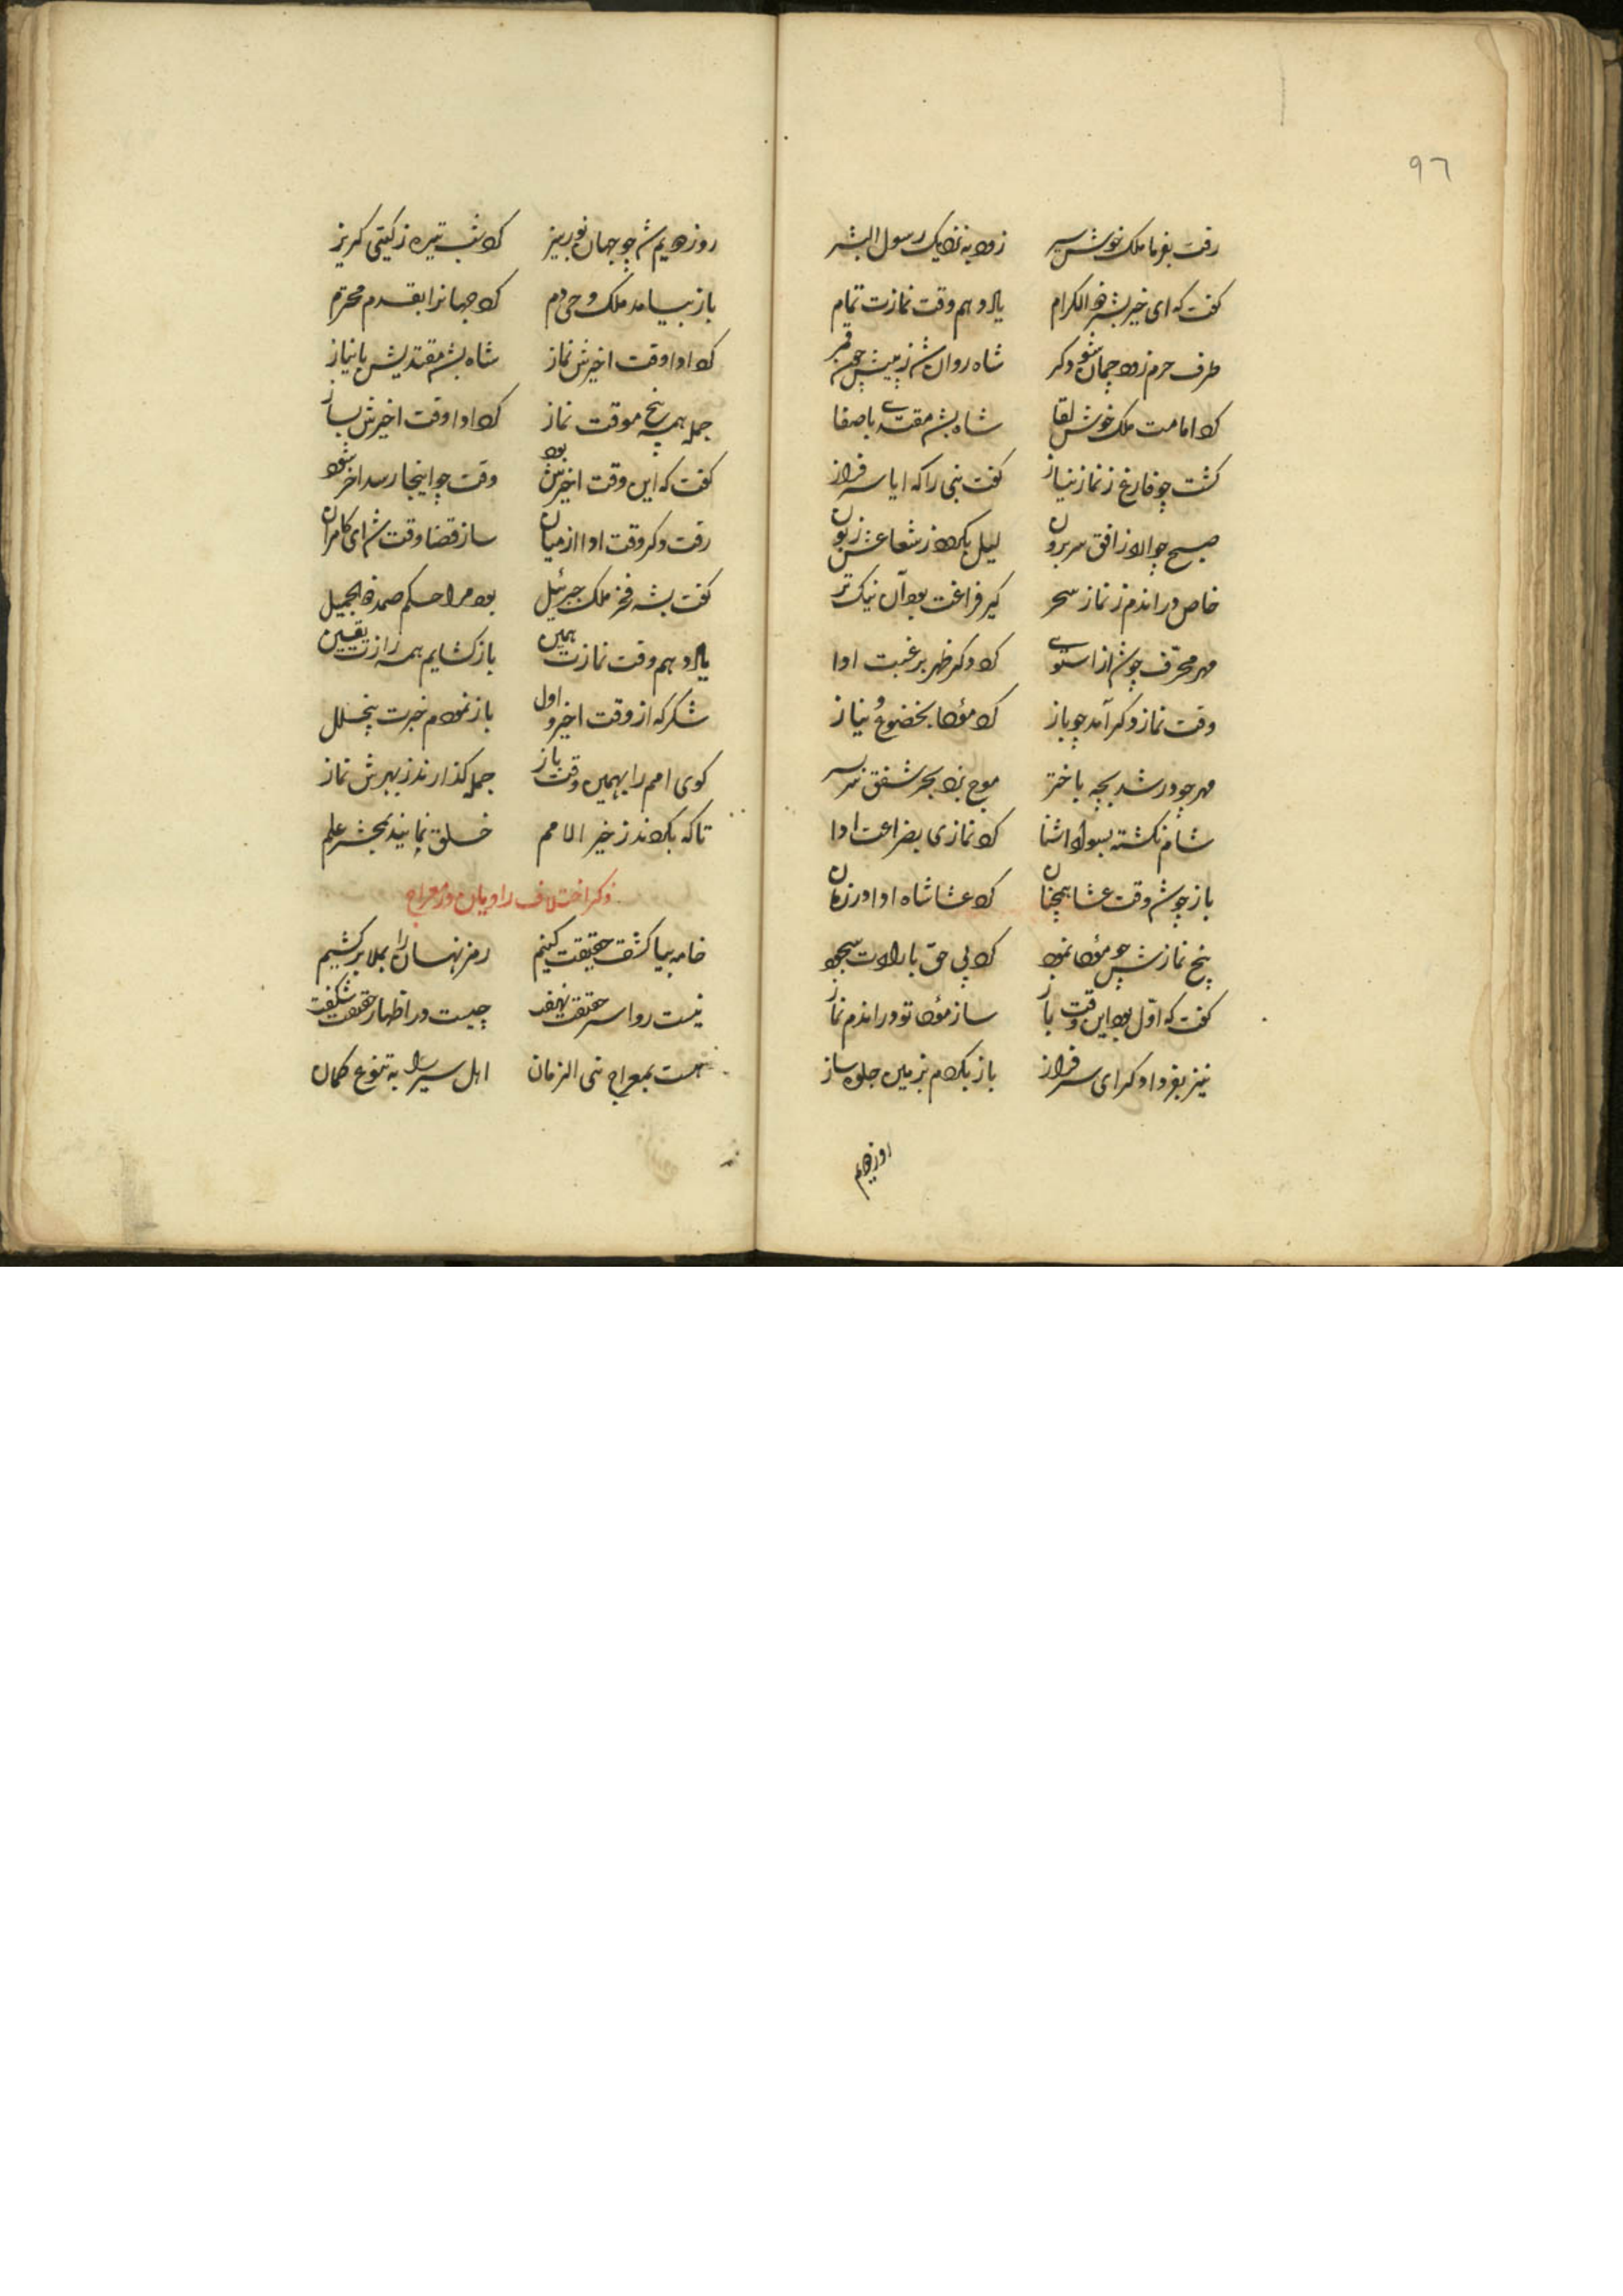 ۹٦
رفت بفرما ملک خوش سیر زود به نزدیک رسول البشر
گفت که ای خیر بشر ذو الکرام یاد دهم وقت نمازت تمام
طرف حرم زود چمان شو دگر شاه روان شد ز پیش چون قمر
کرد امامت ملک خوش لقا شاه بشد مقتدی باصفا
گشت چو فارغ ز نماز نیاز گفت نبی را که ایا سرفراز
صبح چو آرد ز افق سر برون لیل بگردد ز شعاعش زبون
خاص در اندم ز نماز سحر گیر فراغت بود آن نیک تر
مهر محرف چو شد از استوی کرد دگر ظهر برغبت ادا
وقت نماز دگر آمد چو باز کرد مؤدا بخضوع و نیاز
مهر چو در شد بچه باختر موج بزد بحر شفق سربسر
شام نگشته بسواد آشنا کرد نمازی بضراعت ادا
باز چو شد وقت عشا همچنان کرد عشا شاه ادا در زمان
پنج نمازش چو مؤدا نمود کرد پی حق بارادت سجود
گفت که اول بود این وقت باز ساز مؤدا تو در اندم نماز
نیز بفردا دگر ای سرفراز باز بگردم بزمین جلوه ساز
روز دهیم
روز دهیم شد چو جهان نور بیز کرد شب تیره ز گیتی گریز
باز بیامد ملک وحی دم کرد جهانرا بقدم محترم
کرد ادا وقت اخیرش نماز شاه بشد مقتدیش با نیاز
جمله همه پنج موقت نماز کرد ادا وقت اخیرش بساز
گفت که این وقت اخیرش بود وقت چو اینجا رسد آخر شود
رفت دگر وقت ادا از میان ساز قضا وقت شد ای کامران
گفت بشه فخر ملک جبرئیل بود مرا حکم صمد ذو الجمیل
یاد دهم وقت نمازت همین باز گشایم همه رازت یقین
شکر که از وقت اخیر و اول باز نمودم خبرت بیخلل
گوی امم را بهمین وقت باز جمله گذارند ز بهرش نماز
تا که بگردند ز خیر الامم خلق نمایند بمحشر علم
ذکر اختلاف راویان در معراج
خامه بیا کشف حقیقت کنیم رمز نهان را بملا برکشیم
نیست روا سر حقیقت نهفت چیست در اظهار حقیقت شگفت
هست بمعراج نبی الزمان اهل سیر را به تنوع گمان